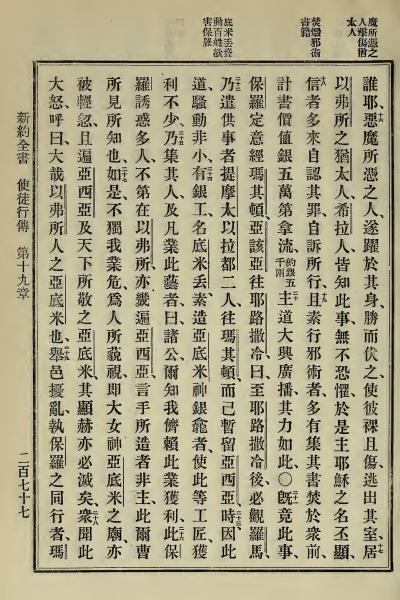 魔所憑之
人擊傷猶
太人
焚燬邪術
書籍
底米丟聳
動百姓欲
害保羅
誰耶、惡魔所憑之人、遂躍於其身、勝而伏之、使彼裸且傷、逃出其室、居
以弗所之猶太人、希拉人、皆知此事、無不恐懼、於是主耶穌之名丕顯、
信者多來自認其罪、自訴所行、且素行邪術者、多有集其書、焚於衆前、
計書價値銀五萬第拿流、約銀五千兩主道大興廣播、其力如此、○旣竟此事、
保羅定意經瑪其頓、亞該亞、往耶路撒冷、曰、至耶路撒冷後、必觀羅馬、
乃遣供事者提摩太以拉都二人往瑪其頓、而己暫留亞西亞、時因此
道、騷動非小、有銀工名底米丟、素造亞底米神銀龕者、使此等工匠獲
利不少、乃集其人及凡業此藝者、曰、諸公、爾知我儕賴此業獲利、此保
羅誘惑多人、不第在以弗所、亦幾遍亞西亞、言手所造者非主、此爾曹
所見所知也、如是不獨我業危、爲人所藐視、卽大女神亞底米之廟、亦
被輕忽、且遍亞西亞及天下所敬之亞底米、其顯赫亦必滅矣、衆聞此
大怒、呼曰、大哉以弗所人之亞底米也、舉邑擾亂、執保羅之同行者、瑪
新約全書　使徒行傳　第十九章　二百七十七